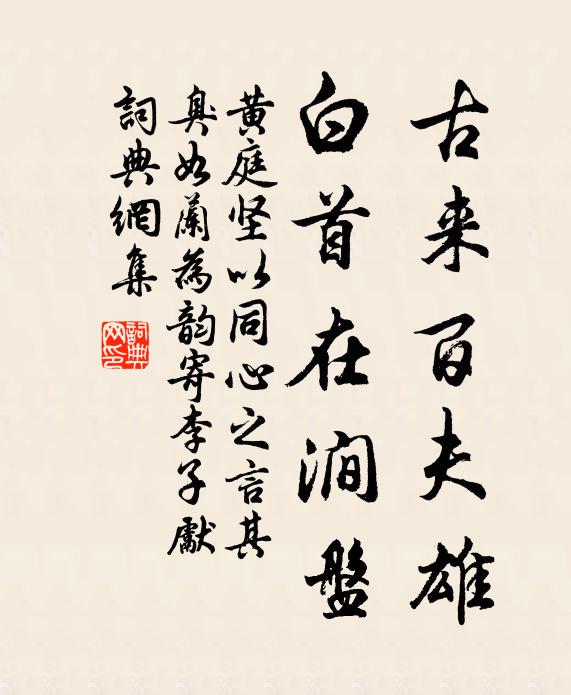 古来百夫雄
白首在涧盤
黄庭坚以同心之言其
臭如蘭為韵寄李子獻
詞典網集
詞典
网印